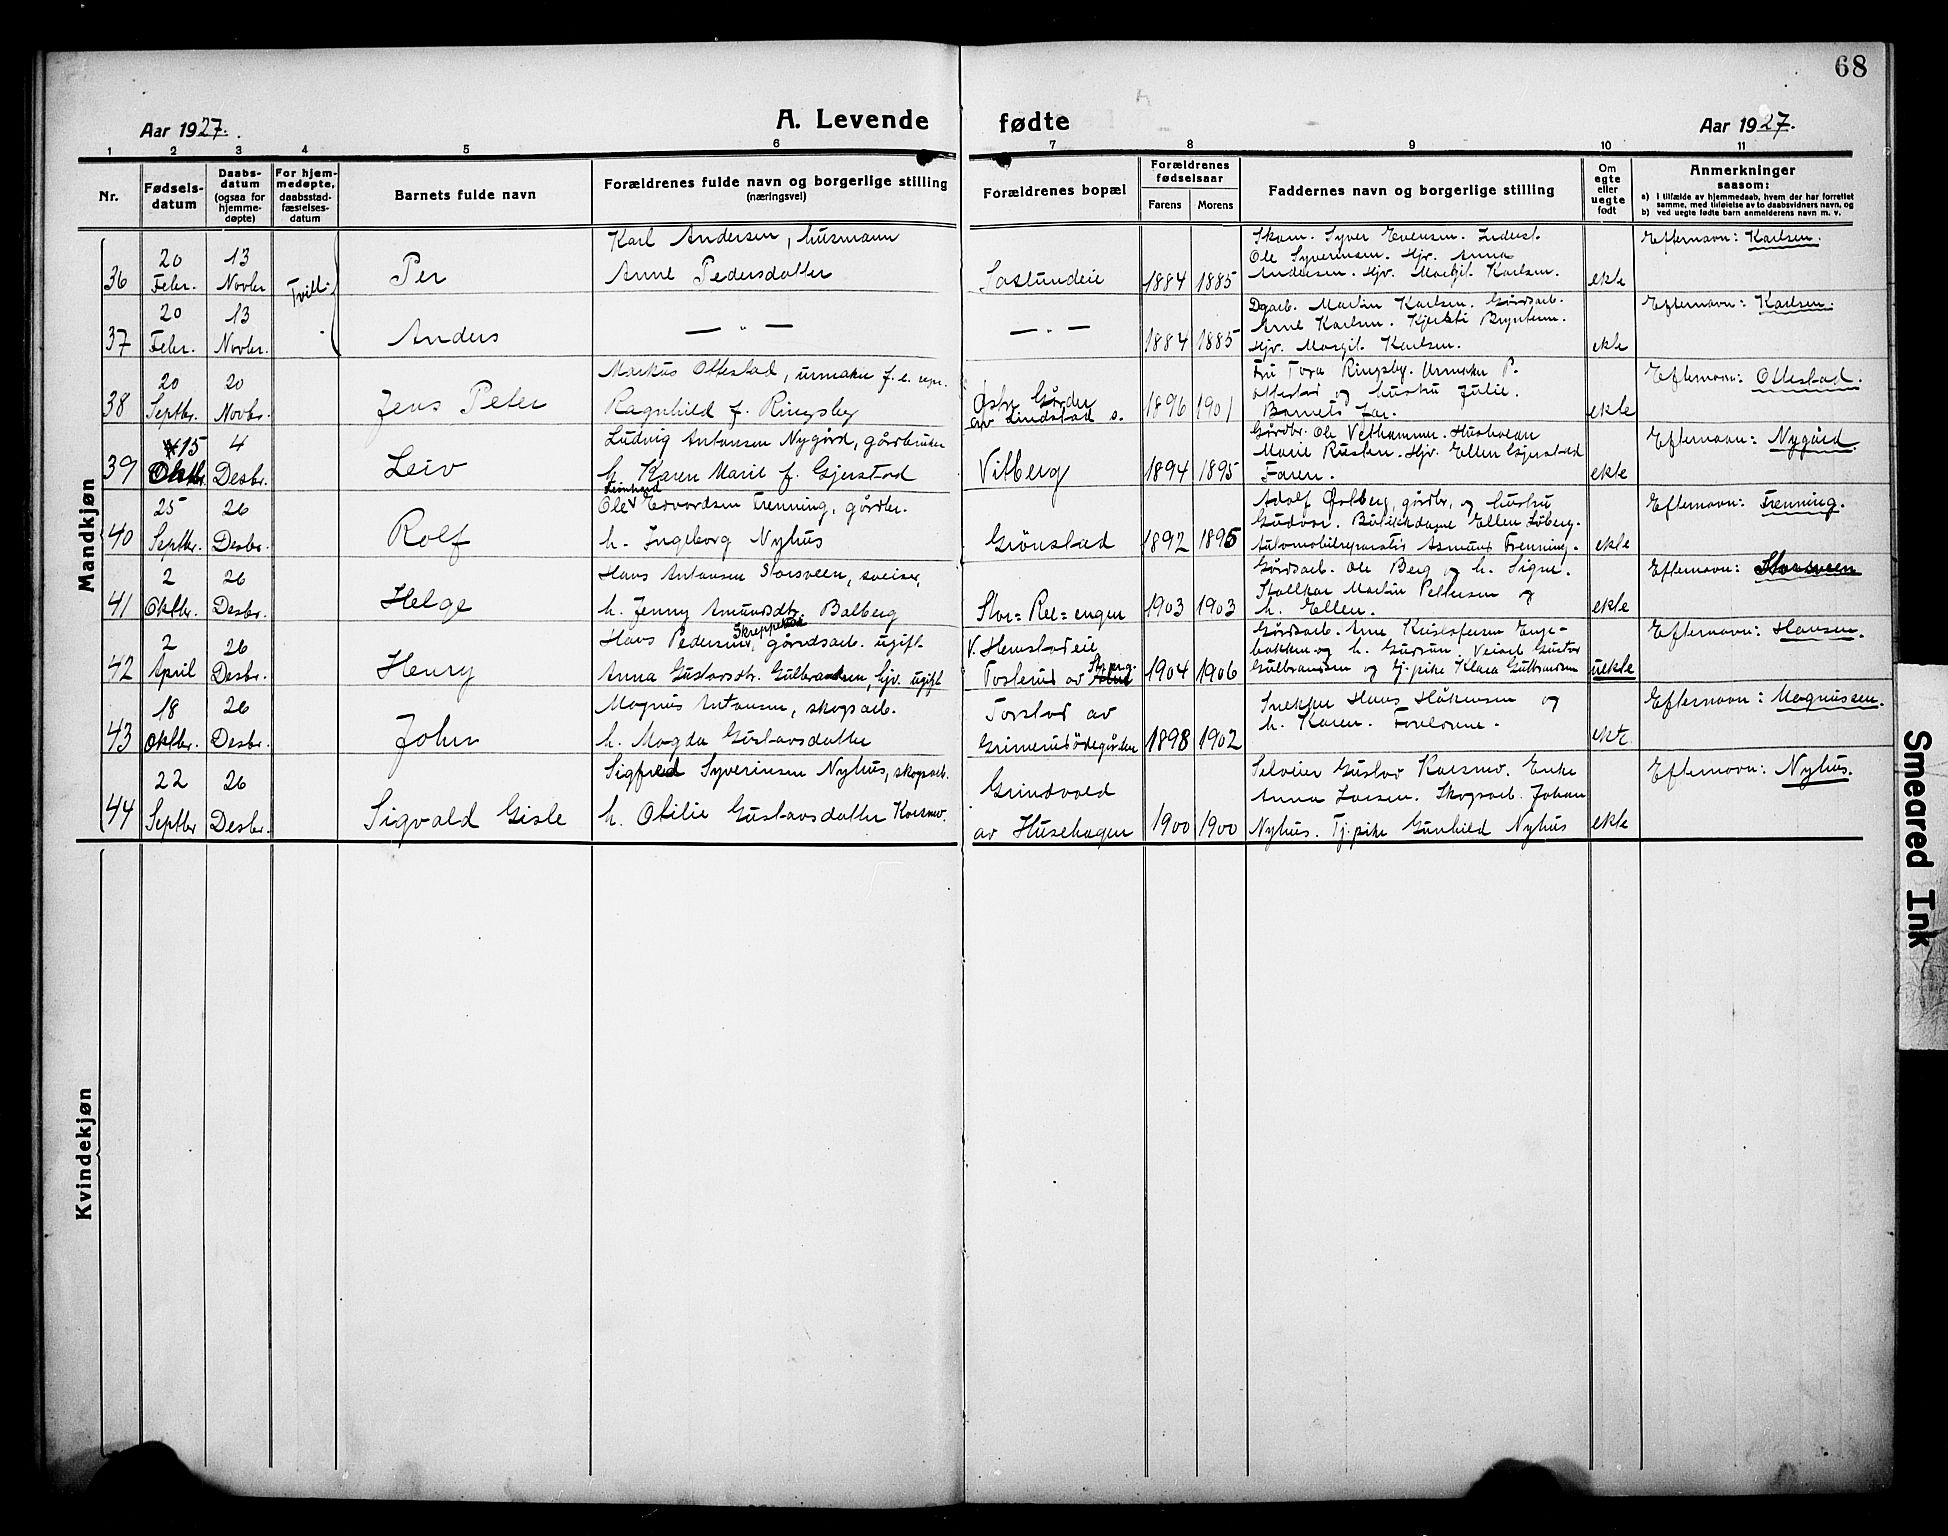 68
Aar 1927.
A. Levende fødte
Aar 1927.
1 2 3 4 5 6 7 8 9 10 11
Nr.
Fødsels-
datum
Daabs-
datum
(ogsaa for
hjemme-
døpte)
For hjem-
medøpte,
daabsstad-
fæstelses-
datum
Barnets fulde navn
Forældrenes fulde navn og borgerlige stilling
(næringsvei)
Forældrenes bopæl
Forældrenes
fødselsaar
Farens Morens
Faddernes navn og borgerlige stilling
Om
egte
eller
uegte
født
Anmerkninger
saasom:
a) I tilfælde av hjemmedaab, hvem der har forrettet
samme, med tilføielse av to daabsvidners navn, og
b) ved uegte fødte barn anmelderens navn m. v.
Mandkjøn
36
20 Febr.
13 Novbr
Tvill.
Per
Karl Andersen, husmann
Anne Pedersdatter
1884 1885
Skom. Syver Evensen. Inderst.
Ole Syversen. Hjv. Anna
Andersen. Hjv. Margit Karlsen.
ekte
Efternavn: Karlsen.
37
20 Febr.
13 Novbr.
Anders
— " —
— " —
1884 1885
Dgarb. Martin Karlsen. Gårdsarb.
Arne Karlsen. Kjersti
Hjv. Margit Karlsen.
ekte
Efternavn: Karlsen.
38
20 Septbr.
20 Novbr.
Jens Peter
Markus Ottestad, urmaker f. e. repr.
Ragnhild f. Ringsby
Østre Gårder
av Lindstad s.
1896 1901
Fru Tora Ringsby. Urmaker P.
Ottestad og hustru Julie.
Barnets far.
ekte
Efternavn: Ottestad.
39
15 Oktbr.
4 Desbr.
Leiv
Ludvig Antonsen Nygård, gårdbruker
h. Karen Marie f. Gjerstad
Vitberg
1894 1895
Gårdbr. Ole Vethammer. Husholdn
Marie Rusten. Hjv. Ellen Gjerstad
Faren.
ekte
Efternavn: Nygård.
40
25 Septbr.
26 Desbr.
Rolf
Ole Edvardsen Frenning, gårdbr.
h. Ingeborg Nyhus
Grønstad
1892 1895
Adolf Østberg, gårdbr, og hustru
Gudrun. Butikkdame Ellen Loberg.
Automobilreparatør Asmund Frenning.
ekte
Efternavn: Frenning.
41
2 Oktbr.
26 Desbr.
Helge
Hans Antonsen Storsveen, sveiser,
h. Jenny Amundsdtr. Balberg
Stor=Rel=engen
1903 1903
Gårdsarb. Ole Berg og h. Signe.
Stallkar Martin Pettersen og
h. Ellen.
ekte
Efternavn: Storsveen
42
2 April
26 Desbr.
Henry
Hans Pedersen, gårdsarb. ugift
Anna Gustavsdtr. Gulbrandsen, hjv. ugift
V. Hemstadeie
1904 1906
Gårdsarb. Arne Kristofersen Enge-
bakken og h. Gudrun. Veiarb Gustav
Gulbrandsen og tj.pike Klara Gulbrandsen
uekte
Efternavn: Hansen.
43
18 Oktbr.
26 Desbr.
John
Magnus Antonsen, skogsarb.
h. Magda Gustavsdatter
Torstad av
Grimerudødegården
1898 1902
Snekker Hans Håkensen og
h. Karen. Foreldrene.
ekte
Efternavn: Magnussen.
44
22 Septbr
26 Desbr.
Sigvald Gisle
Sigfred Syverinsen Nyhus, skogsarb.
h. Otilie Gustavsdatter Korsmo.
Grindvold
av Husehagen
1900 1900
Selveier Gustav Korsmo. Enke
Anna Larsen. Skogsarb. Johan
Nyhus. Tj.pike Gunhild Nyhus
ekte
Efternavn: Nyhus.
Kvindekjøn
Smeared Ink